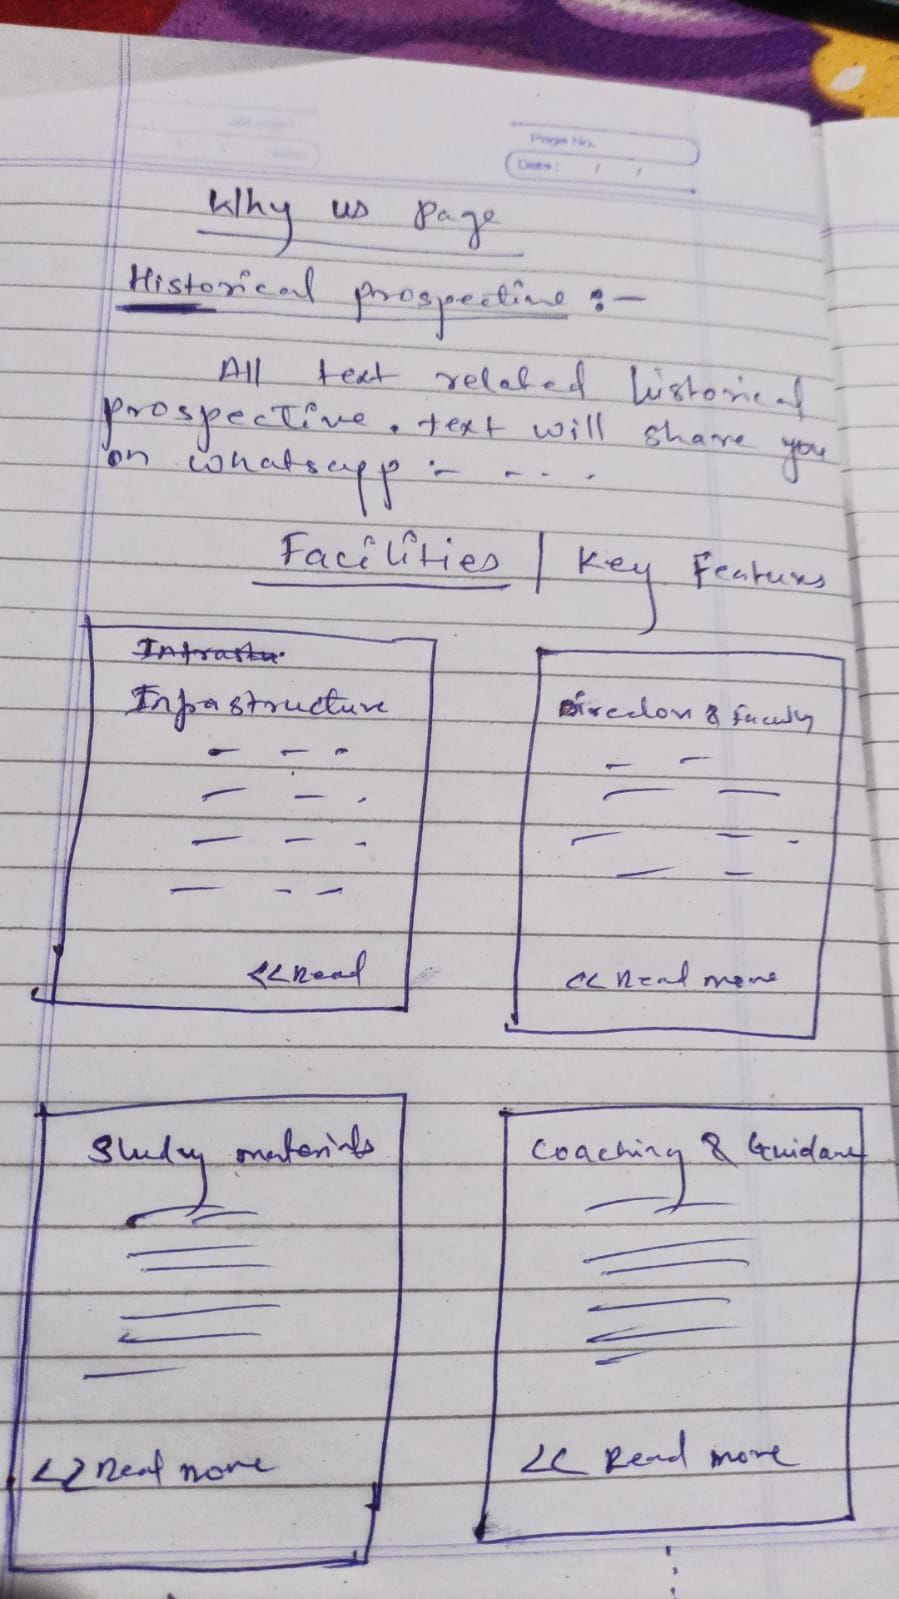 Page No.
Date: / /
Why us page
Historical prospective :-
All text related historical
prospective. text will share you
on whatsapp :- - - - .
Facilities | Key Features
Infrastu.
Infrastructure
Direction & Faculty
<< Read
<< Read more
Study materials
Coaching & Guidance
<< Read more
<< Read more